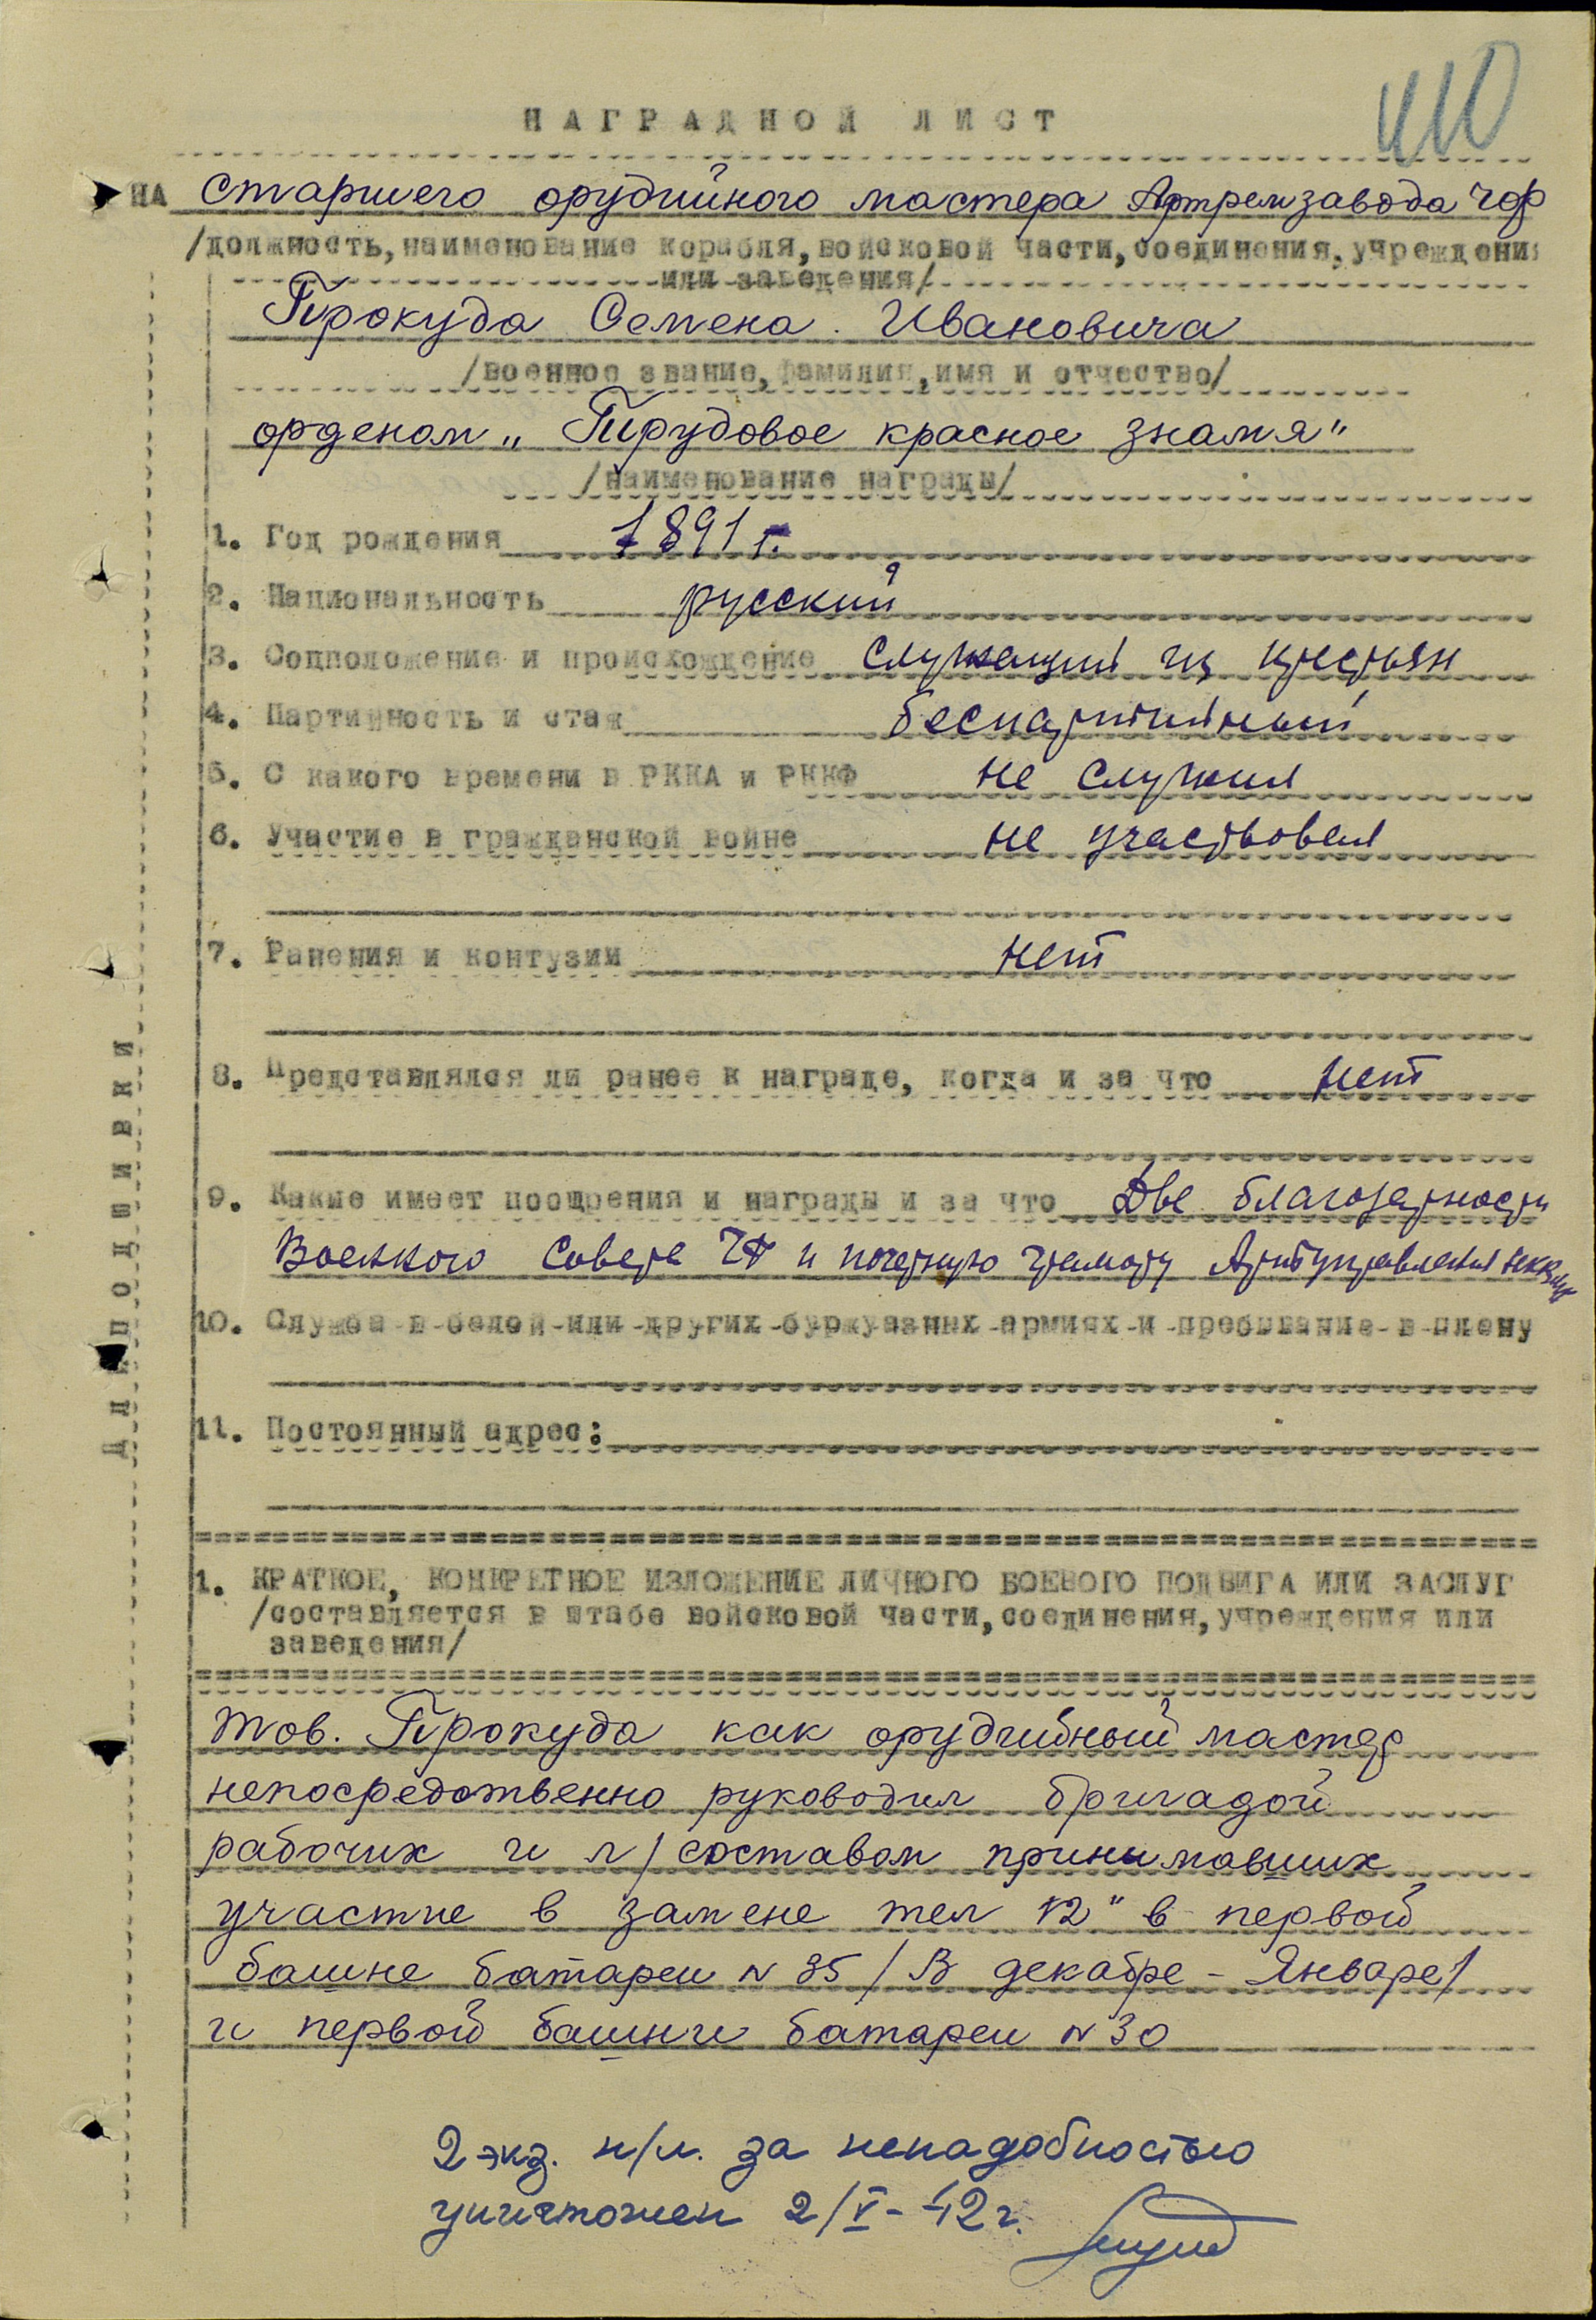 410
НАГРАДНОЙ ЛИСТ
НА старшего орудийного мастера Артремзавода ЧФ
/должность, наименование корабля, войсковой части, соединения, учреждения
или заведения/
Прокуда Семена Ивановича
/военное звание, фамилия, имя и отчество/
орденом „Трудовое красное знамя"
/наименование награды/
1. Год рождения 1891 г.
2. Национальность русский
3. Соцположение и происхождение служащий из крестьян
4. Партийность и стаж беспартийный
5. С какого времени в РККА и РККФ не служил
6. Участие в гражданской войне не участвовал
7. Ранения и контузии нет
8. Представлялся ли ранее к награде, когда и за что нет
9. Какие имеет поощрения и награды и за что Две благодарности
Военного Совета ЧФ и почетную грамоту Артуправления
10. Служба в белой или других буржуазных армиях и пребывание в плену
11. Постоянный адрес:
1. КРАТКОЕ, КОНКРЕТНОЕ ИЗЛОЖЕНИЕ ЛИЧНОГО БОЕВОГО ПОДВИГА ИЛИ ЗАСЛУГ
/составляется в штабе войсковой части, соединения, учреждения или
заведения/
тов. Прокуда как орудийный мастер
непосредственно руководил бригадой
рабочих и л/составом принымавших
участие в замене тел 12" в первой
башне батареи N 35 /В декабре - Январе/
и первой башни батареи N 30
2 экз. н/л. за ненадобностью
уничтожен 2/V-42г.
Для подшивки